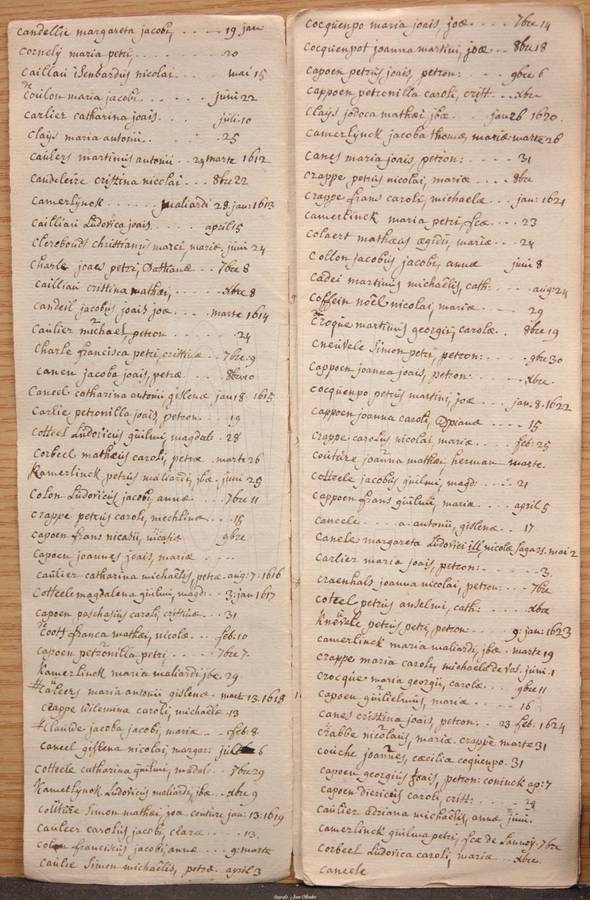 candellie margareta jacobi, .... 19 jan
cornelÿ maria petri, .... 20
caillau isenbardus nicolai ... mai 15
coulon maria jacobi .... juni 22
carlier catharina joais ... juli. 10
claÿs maria antonii .... 25
caulers martinus antonii .. 24 marte 1612
candeleire cristina nicolai ... 8bre 22
camerlynck ..... maliardi 28. jan: 1613
cailliau Ludovica joais ..... april 15
clerebondt christianus marci, mariæ, juni 24
charle joaes petri, ... 7bre 8
cailliau cristina mathei, .... xbre 8
candeil jacobus joais joæ ... marte 1614
caulier michael, petron .... 24
charle francisca petri, cristinæ .. 7bre. 9
caneu jacoba joais, petræ ... 8bre 10
caneel catharina antonii gislenæ jan 18. 1615
carlie petronilla joais, petron ... 19
cotteel Ludovicus guilmi, magdal: .. 28
corbeel mathæus caroli, petræ . marte 26
kamerlinck petrus maliardi, jbæ . juni 25
colon Ludovicus jacobi, annæ .. 7bre 11
crappe petrus caroli, mechlinæ .. 15
capoen frans nicasii, nicasiæ 9bre
capoen joannes joais, mariæ ....
caulier catharina michaëlis, petræ . aug: 7. 1616
cotteele magdalena guilmi, magd: .. 3: jan 1617
capoen paschasius caroli, cristinæ .. 31
coott franca mathei, nicolæ .. feb: 10
capoen petronilla petri .... 7bre 7.
kamerlinck maria maliardi jbæ . 29
caulers maria antonii gislenæ . marte 13. 1618
crappe wilemine caroli, michaelæ . 13
claude jacoba jacobi, mariæ .. feb: 8
caneel gislena nicolai, margar: juli 6
cotteele catharina guilmi, madal .. 7bre 29
kamerlynck Ludovicus maliardi, jbæ . xbre 9
coutture Simon mathei, joa. couture jan: 13. 1619
cauleer carolus jacobi, claræ ... 13.
colon franciscus jacobi, annæ .. 9: marte
caulie Simon michaëlis, petræ . april 3
cocquenpo maria joais, joæ .... 7bre 14
cocquenpot joanna martini, joæ .. 8bre 18
capoen petrus joais, petron: .... 9bre 6
cappoen petronilla caroli, cristi ... xbre
claÿs jodoca mathæi jbæ . jan 26 1620.
camerlynck jacoba thomæ, mariæ marte 26
canes maria joais, petron: .... 31
crappe petrus nicolai, mariæ ... 8bre
crappe frans caroli, michaelæ ... jan: 1621
camerlinck maria petri, fcæ .. 23
colaert mathæus ægidii, mariæ .. 24
collon jacobus jacobi, annæ juni 8
cadei martinus michaëlis, cath: .... aug: 24
coffein noël nicolai, mariæ .... 29
croque martinus georgii, carolæ . 8bre 19
cneuvele Simon petri, petron: ... 9bre 30
cappoen joanna joais, petron: .. xbre
cocquenpo petrus martini, joæ ... jan. 8. 1622
cappoen joanna caroli, ... 15
crappe carolus nicolai mariæ ... feb: 25
couture joanna mathei herman marte.
cotteele jacobus guilmi, magd: .. 21
cappoen frans guilmi, mariæ ... april 5
caneele .... a. antonii, gislenæ .. 17
canele margareta Ludovici ill, nicolæ sagars. mai 2
carlier maria joais, petron: ... 3.
craenhals joanna nicolai, petron: .. 7bre
coteel petrus anselmi, cath: .... xbre
knevele petrus petri, petron .... 9: jan: 1623
camerlinck maria maliardi, jbæ . marte 19
crappe maria caroli, michaëlæ de vos . juni. 1
crocque maria georgii, carolæ .. 9bre 11
capoen guilielmus, mariæ ... 16
canes cristina joais, petron: .. 23 feb: 1624
crabbe nicolaus, mariæ crappe marte 31
couche joannes, cæciliæ coquenpo. 31
capoen georgius joais, petron: coninck ap: 7
capoen diericus caroli, crist: .. 24
caulier adriana michaëlis, annæ juni.
camerlinck guilma petri, fcæ de Launoy . 7bre
corbeel Ludovica caroli, mariæ .. xbre
caneele